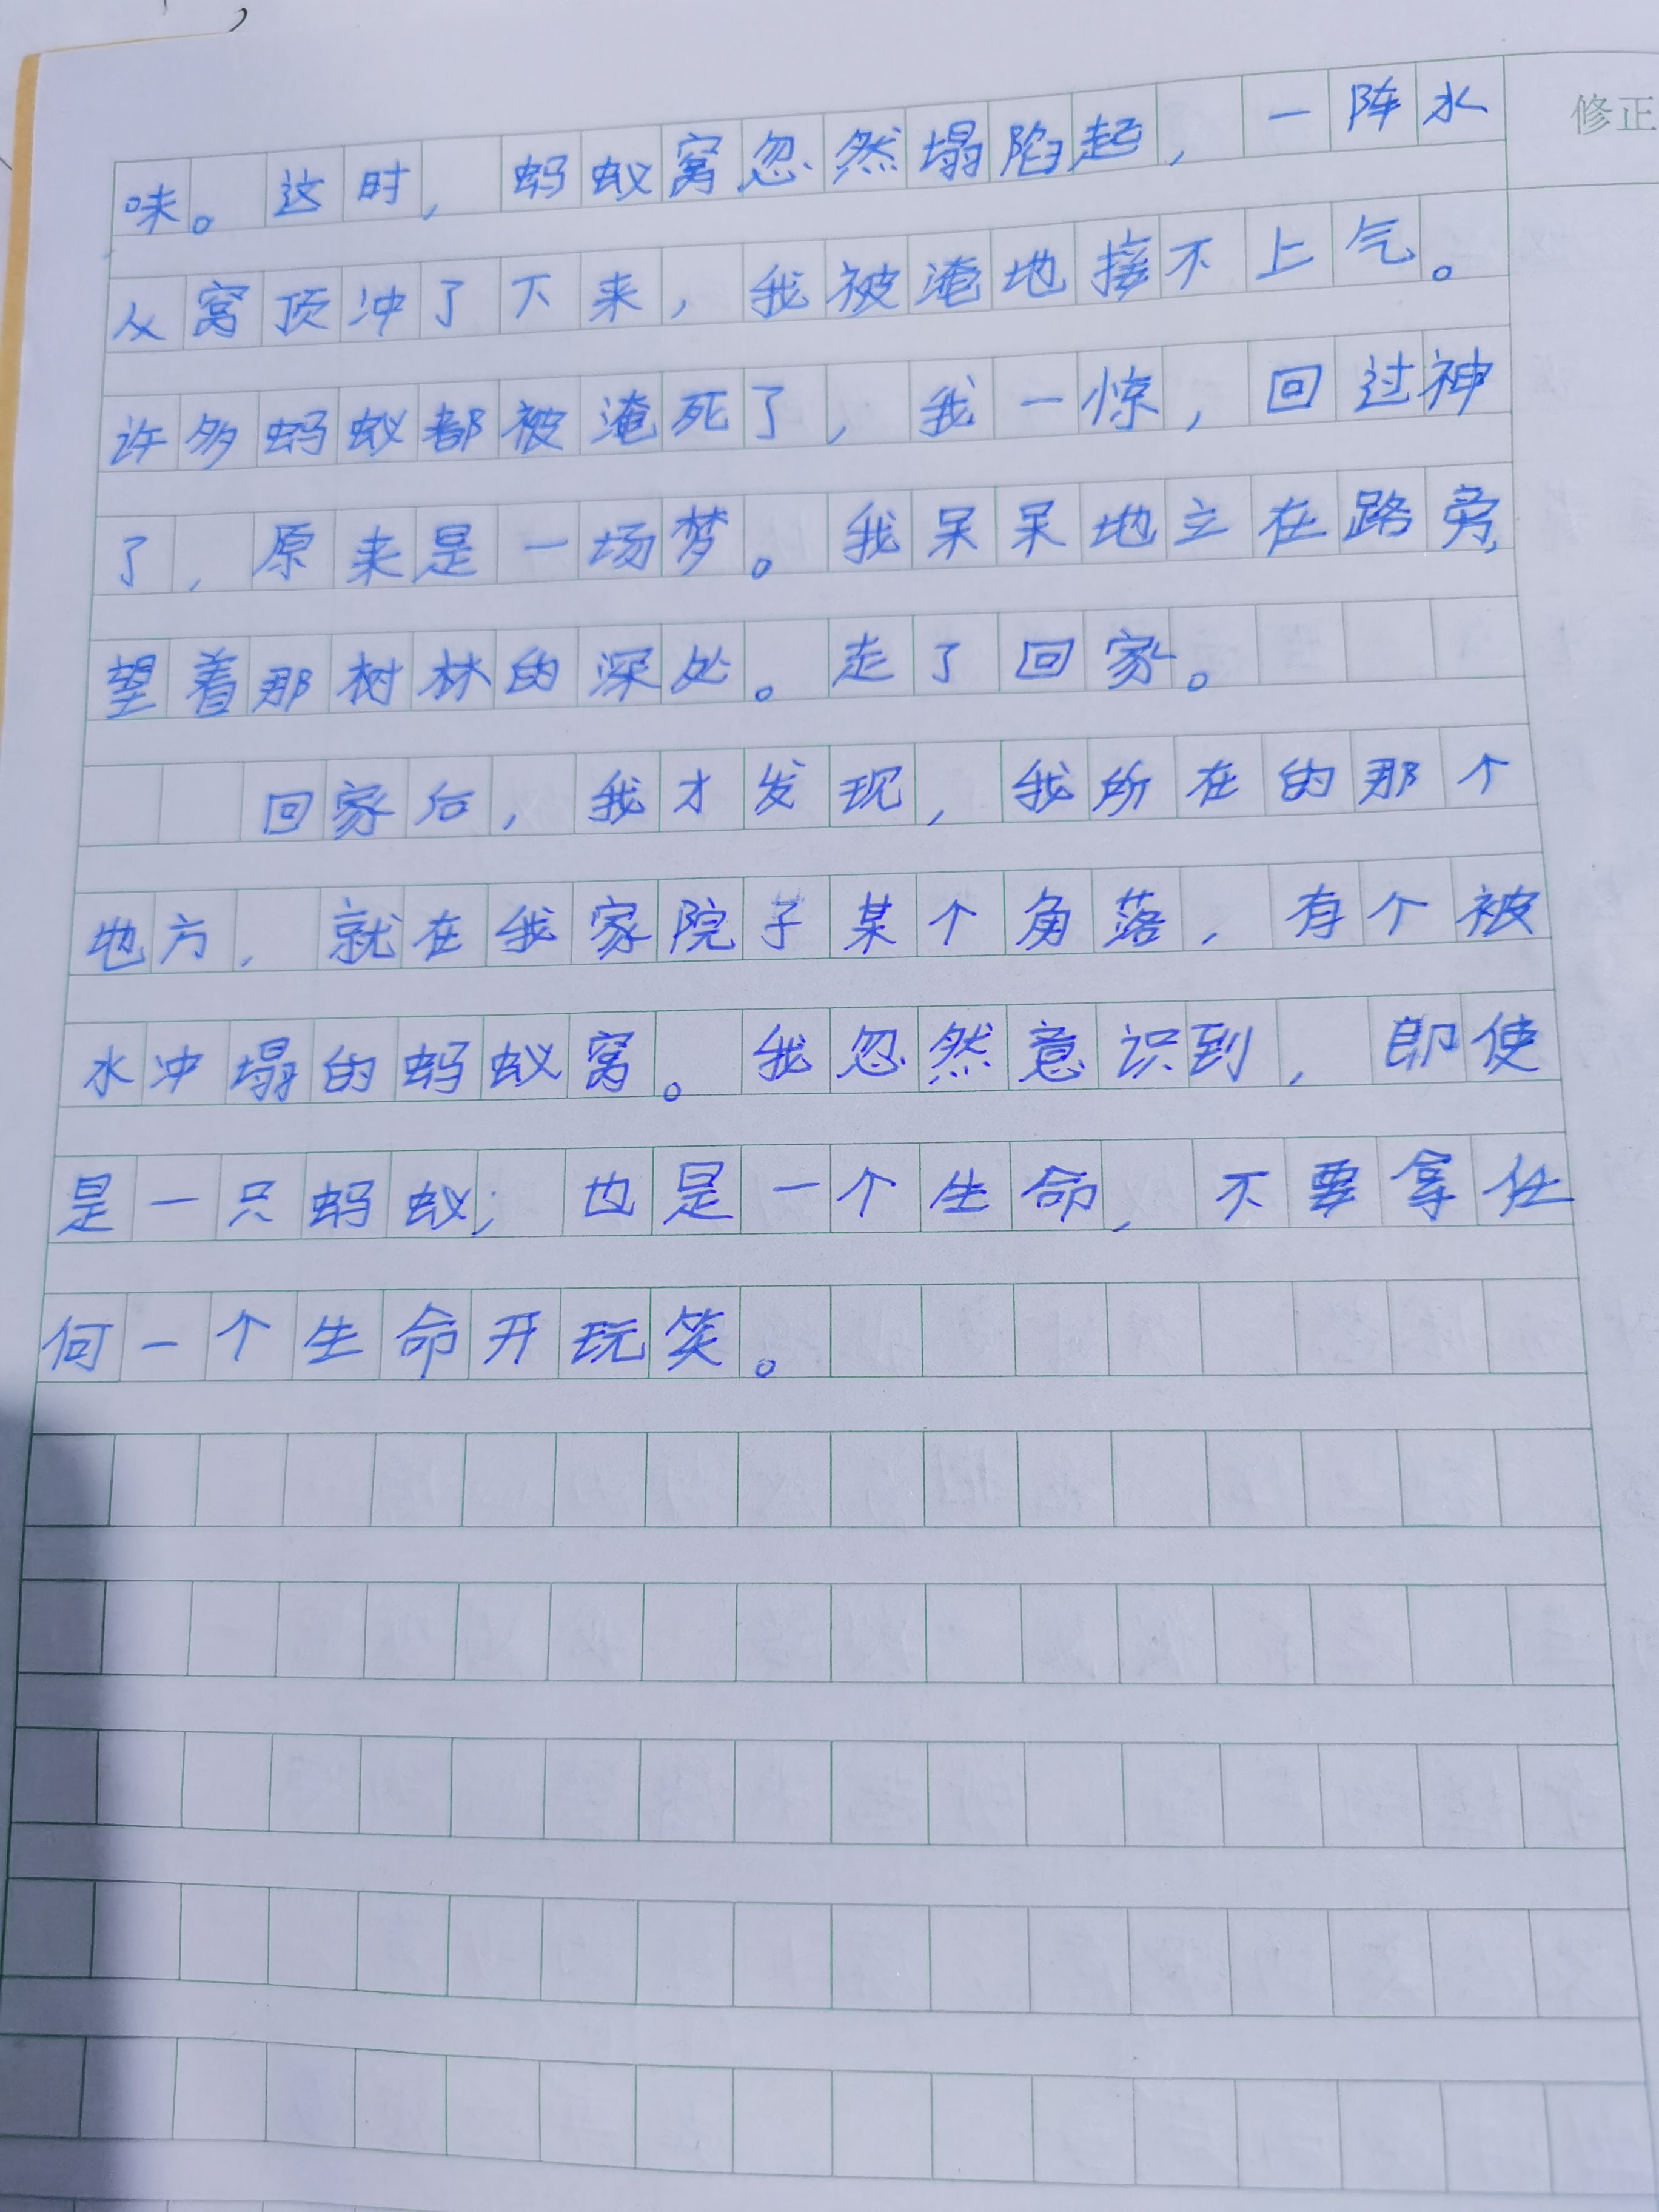 修正
味。这时，蚂蚁窝忽然塌陷起，一阵水
从窝顶冲了下来，我被淹地接不上气。
许多蚂蚁都被淹死了，我一惊，回过神
了，原来是一场梦。我呆呆地立在路旁，
望着那树林的深处。走了回家。
回家后，我才发现，我所在的那个
地方，就在我家院子某个角落，有个被
水冲塌的蚂蚁窝。我忽然意识到，即使
是一只蚂蚁，也是一个生命，不要拿任
何一个生命开玩笑。